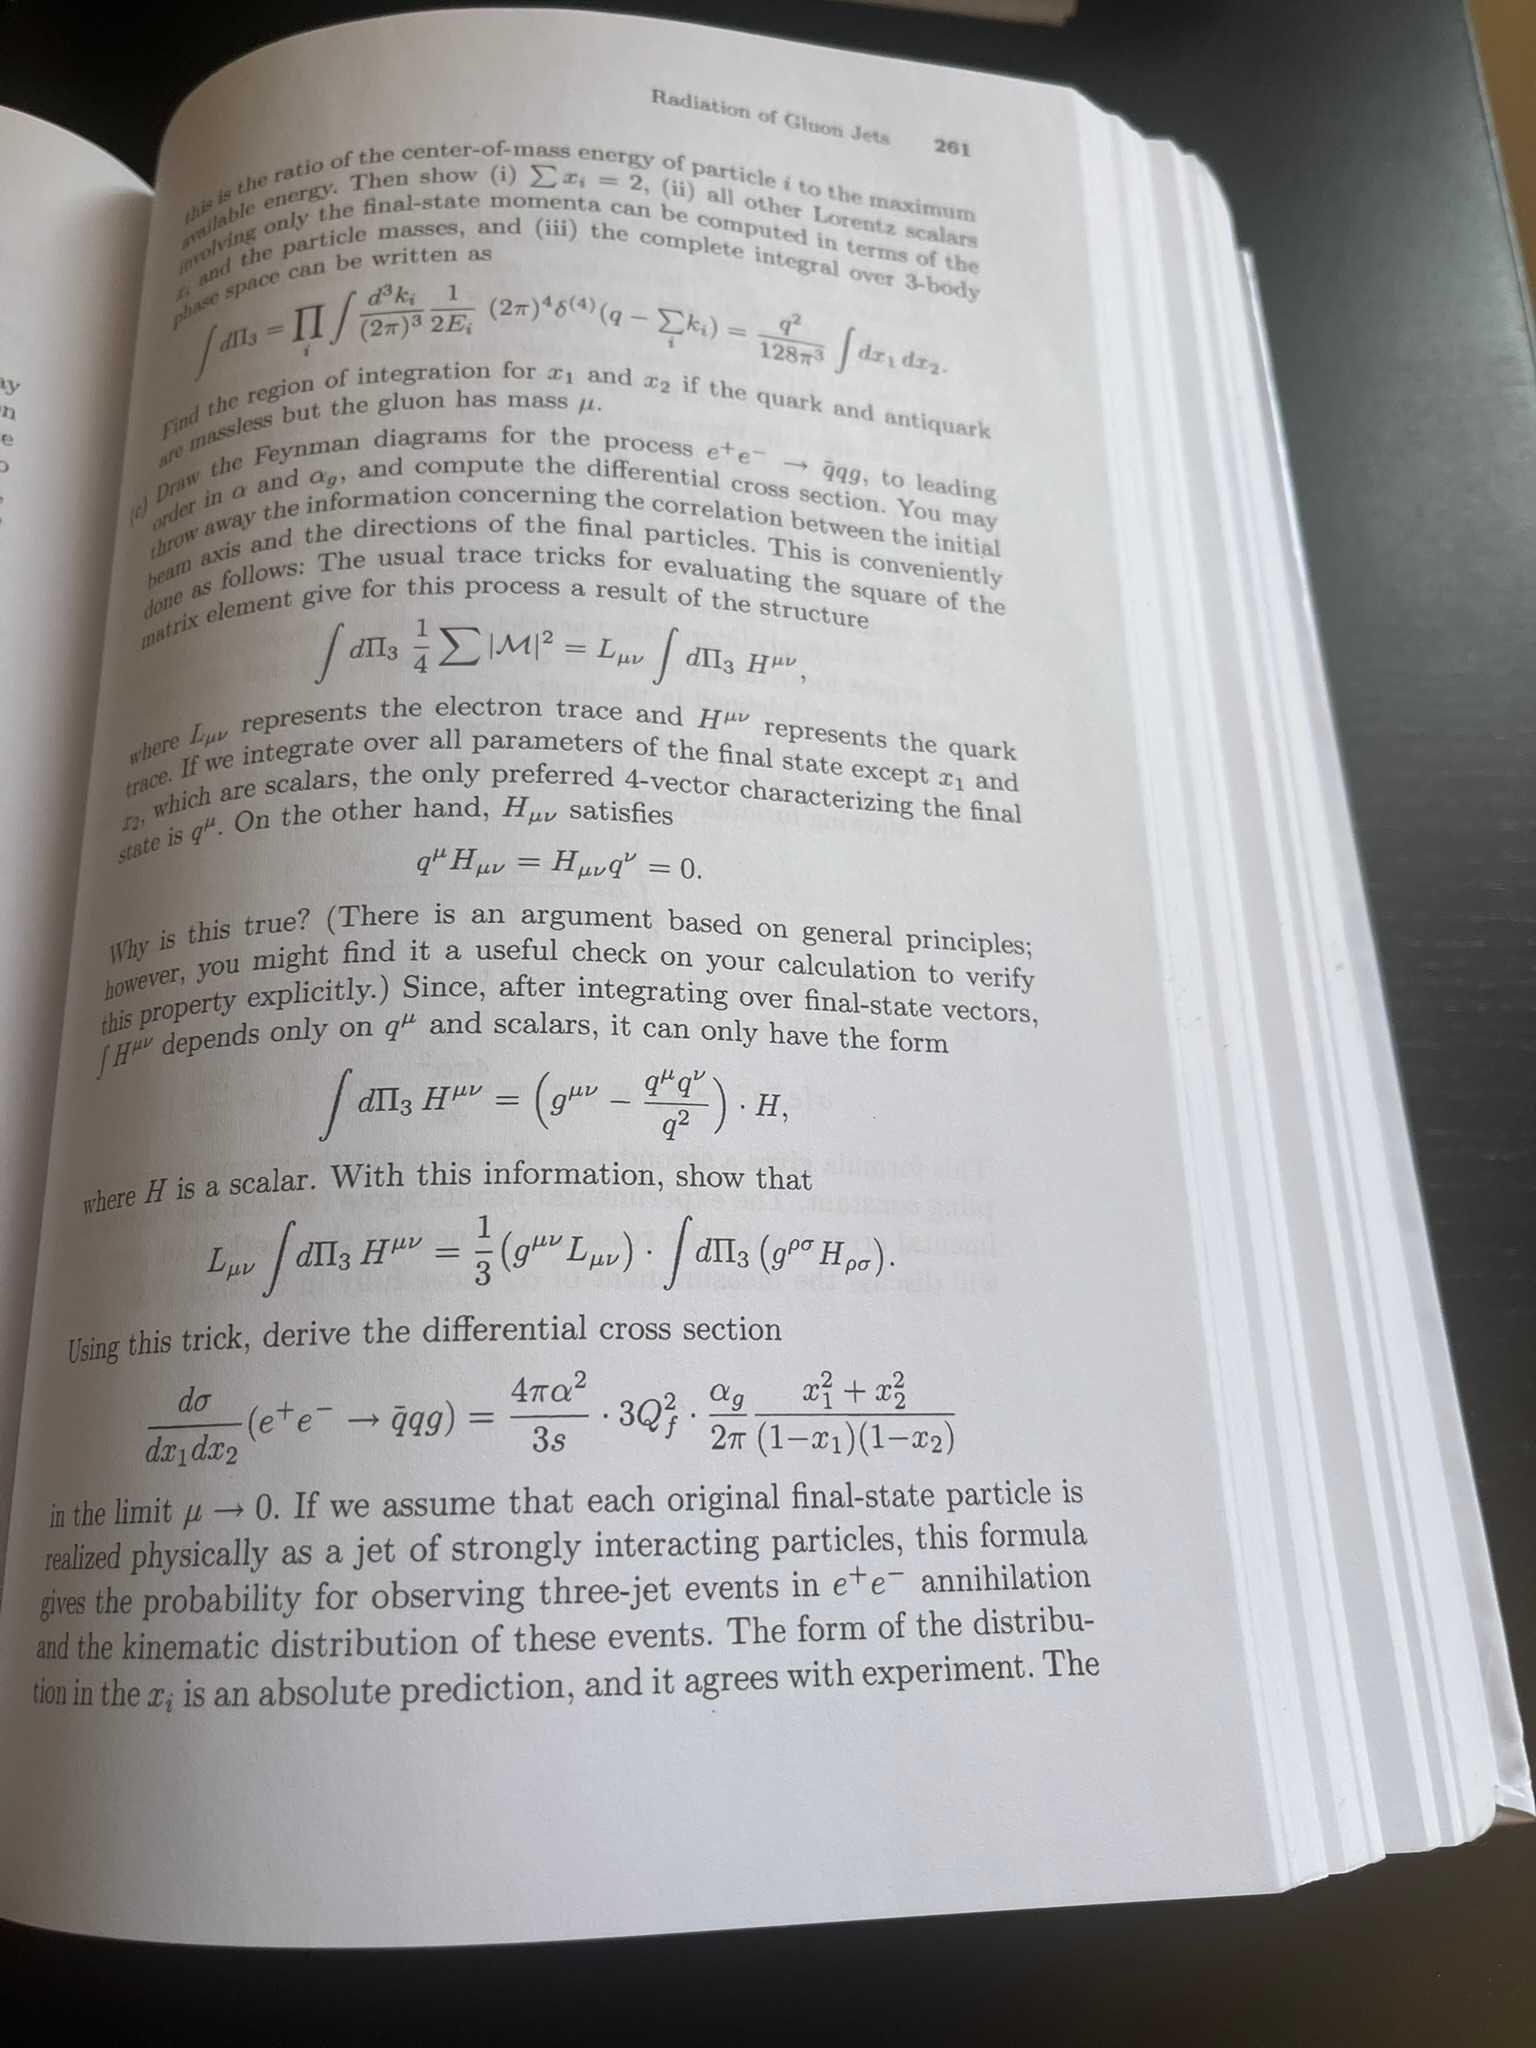 Radiation of Gluon Jets 261
this is the ratio of the center-of-mass energy of particle i to the maximum
available energy. Then show (i) ∑ xᵢ = 2, (ii) all other Lorentz scalars
involving only the final-state momenta can be computed in terms of the
xᵢ and the particle masses, and (iii) the complete integral over 3-body
phase space can be written as
∫ dΠ₃ = ∏ᵢ ∫ d³kᵢ/(2π)³ 1/2Eᵢ (2π)⁴δ⁽⁴⁾(q − ∑ᵢkᵢ) = q²/128π³ ∫ dx₁ dx₂.
Find the region of integration for x₁ and x₂ if the quark and antiquark
are massless but the gluon has mass μ.
(c) Draw the Feynman diagrams for the process e⁺e⁻ → q̄qg, to leading
order in α and α_g, and compute the differential cross section. You may
throw away the information concerning the correlation between the initial
beam axis and the directions of the final particles. This is conveniently
done as follows: The usual trace tricks for evaluating the square of the
matrix element give for this process a result of the structure
∫ dΠ₃ 1/4 ∑ |ℳ|² = L_μν ∫ dΠ₃ H^μν,
where L_μν represents the electron trace and H^μν represents the quark
trace. If we integrate over all parameters of the final state except x₁ and
x₂, which are scalars, the only preferred 4-vector characterizing the final
state is q^μ. On the other hand, H_μν satisfies
q^μ H_μν = H_μν q^ν = 0.
Why is this true? (There is an argument based on general principles;
however, you might find it a useful check on your calculation to verify
this property explicitly.) Since, after integrating over final-state vectors,
∫ H^μν depends only on q^μ and scalars, it can only have the form
∫ dΠ₃ H^μν = (g^μν − q^μ q^ν/q²) · H,
where H is a scalar. With this information, show that
L_μν ∫ dΠ₃ H^μν = 1/3 (g^μν L_μν) · ∫ dΠ₃ (g^ρσ H_ρσ).
Using this trick, derive the differential cross section
dσ/dx₁dx₂ (e⁺e⁻ → q̄qg) = 4πα²/3s · 3Q_f² · α_g/2π (x₁² + x₂²)/(1−x₁)(1−x₂)
in the limit μ → 0. If we assume that each original final-state particle is
realized physically as a jet of strongly interacting particles, this formula
gives the probability for observing three-jet events in e⁺e⁻ annihilation
and the kinematic distribution of these events. The form of the distribu-
tion in the xᵢ is an absolute prediction, and it agrees with experiment. The